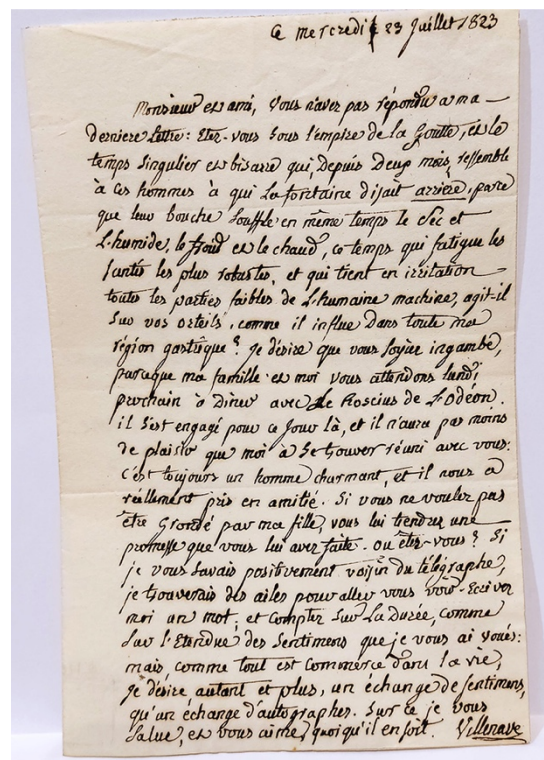 Ce mercredi 23 Juillet 1823
Monsieur et ami, Vous n'avez pas répondu a ma
derniere Lettre: Etes-vous sous l'empire de la Goutte, et le
temps singulier et bisarre qui, depuis deux mois, ressemble
à ces hommes à qui La fontaine disait arrière, parce
que leur bouche souffle en même temps le sec et
L'humide, le froid et le chaud, ce temps qui fatigue les
santés les plus robustes, et qui tient en irritation
toutes les parties faibles de L'humaine machine, agit-il
sur vos orteils, comme il influe dans toute ma
région gastrique? Je désire que vous soyez ingambe,
parceque ma famille et moi vous attendons lundi
prochain à Diner avec Le Roscius de L'odéon.
il s'est engagé pour ce Jour là, et il n'aura pas moins
de plaisir que moi à se trouver réuni avec vous:
c'est toujours un homme charmant, et il nous a
réellement pris en amitié. Si vous ne voulez pas
être Grondé par ma fille, vous lui tiendrez une
promesse que vous lui avez faite. ou êtes-vous? Si
je vous savais positivement voisin du télégraphe,
je trouverais des ailes pour aller vous voir. Ecrivez
moi un mot; et comptez sur La Durée, comme
sur l'Etendue des sentimens que je vous ai voués:
mais comme tout est commerce dans la vie,
je désire autant et plus, un échange de sentimens,
qu'un échange d'autographes. Sur ce je vous
salue, et vous aime, quoi qu'il en soit. Villenave